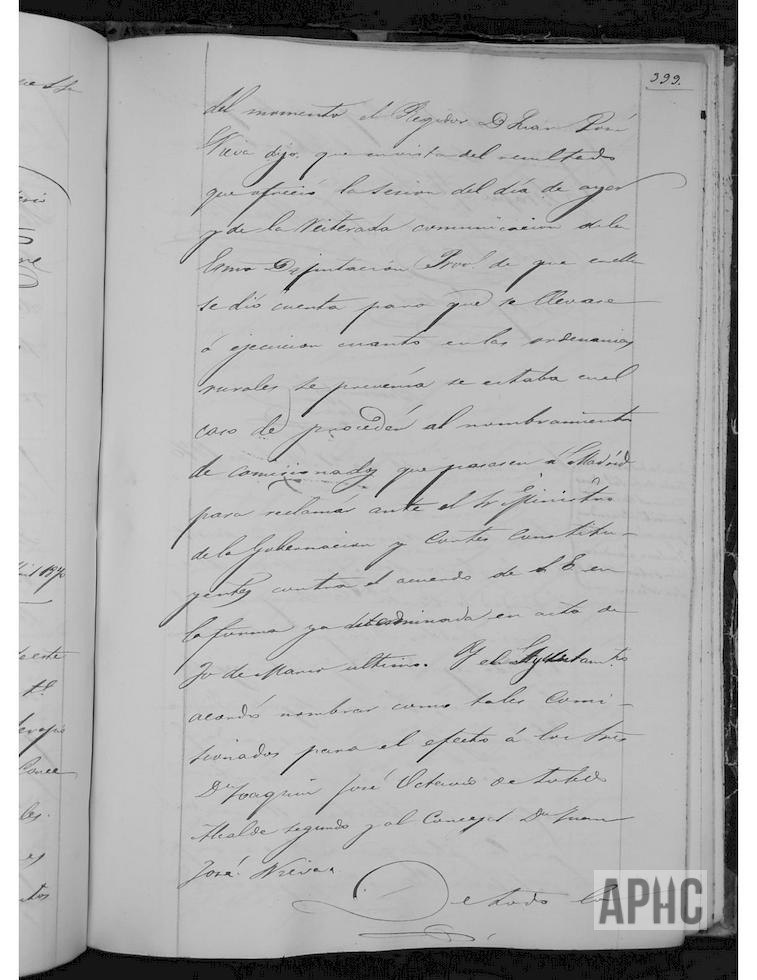 399.
del momento el Regidor D Juan José
Nieva dijo: que en vista del resultado
que ofreció la sesion del dia de ayer
y de la reiterada comunicacion de la
Exma Diputacion Prov.l de que en ella
se dió cuenta para que se llevase
á ejecucion cuanto en las ordenanzas
rurales se prevenia se estaba en el
caso de proceder al nombramiento
de comisionados que pasasen á Madrid
para reclamar ante el Sr Ministro
de la Gobernacion y Cortes Constitu-
yentes contra el acuerdo de S. E. en
la forma ya determinada en acta de
30 de Marzo ultimo. Y el Ayuntam.to
acordó nombrar como tales Comi-
sionados para el efecto á los Sres
Dn Joaquin José Octavio de Toledo
Alcalde segundo y al Concejal Dn Juan
José Nieva.
De todo lo
APHC